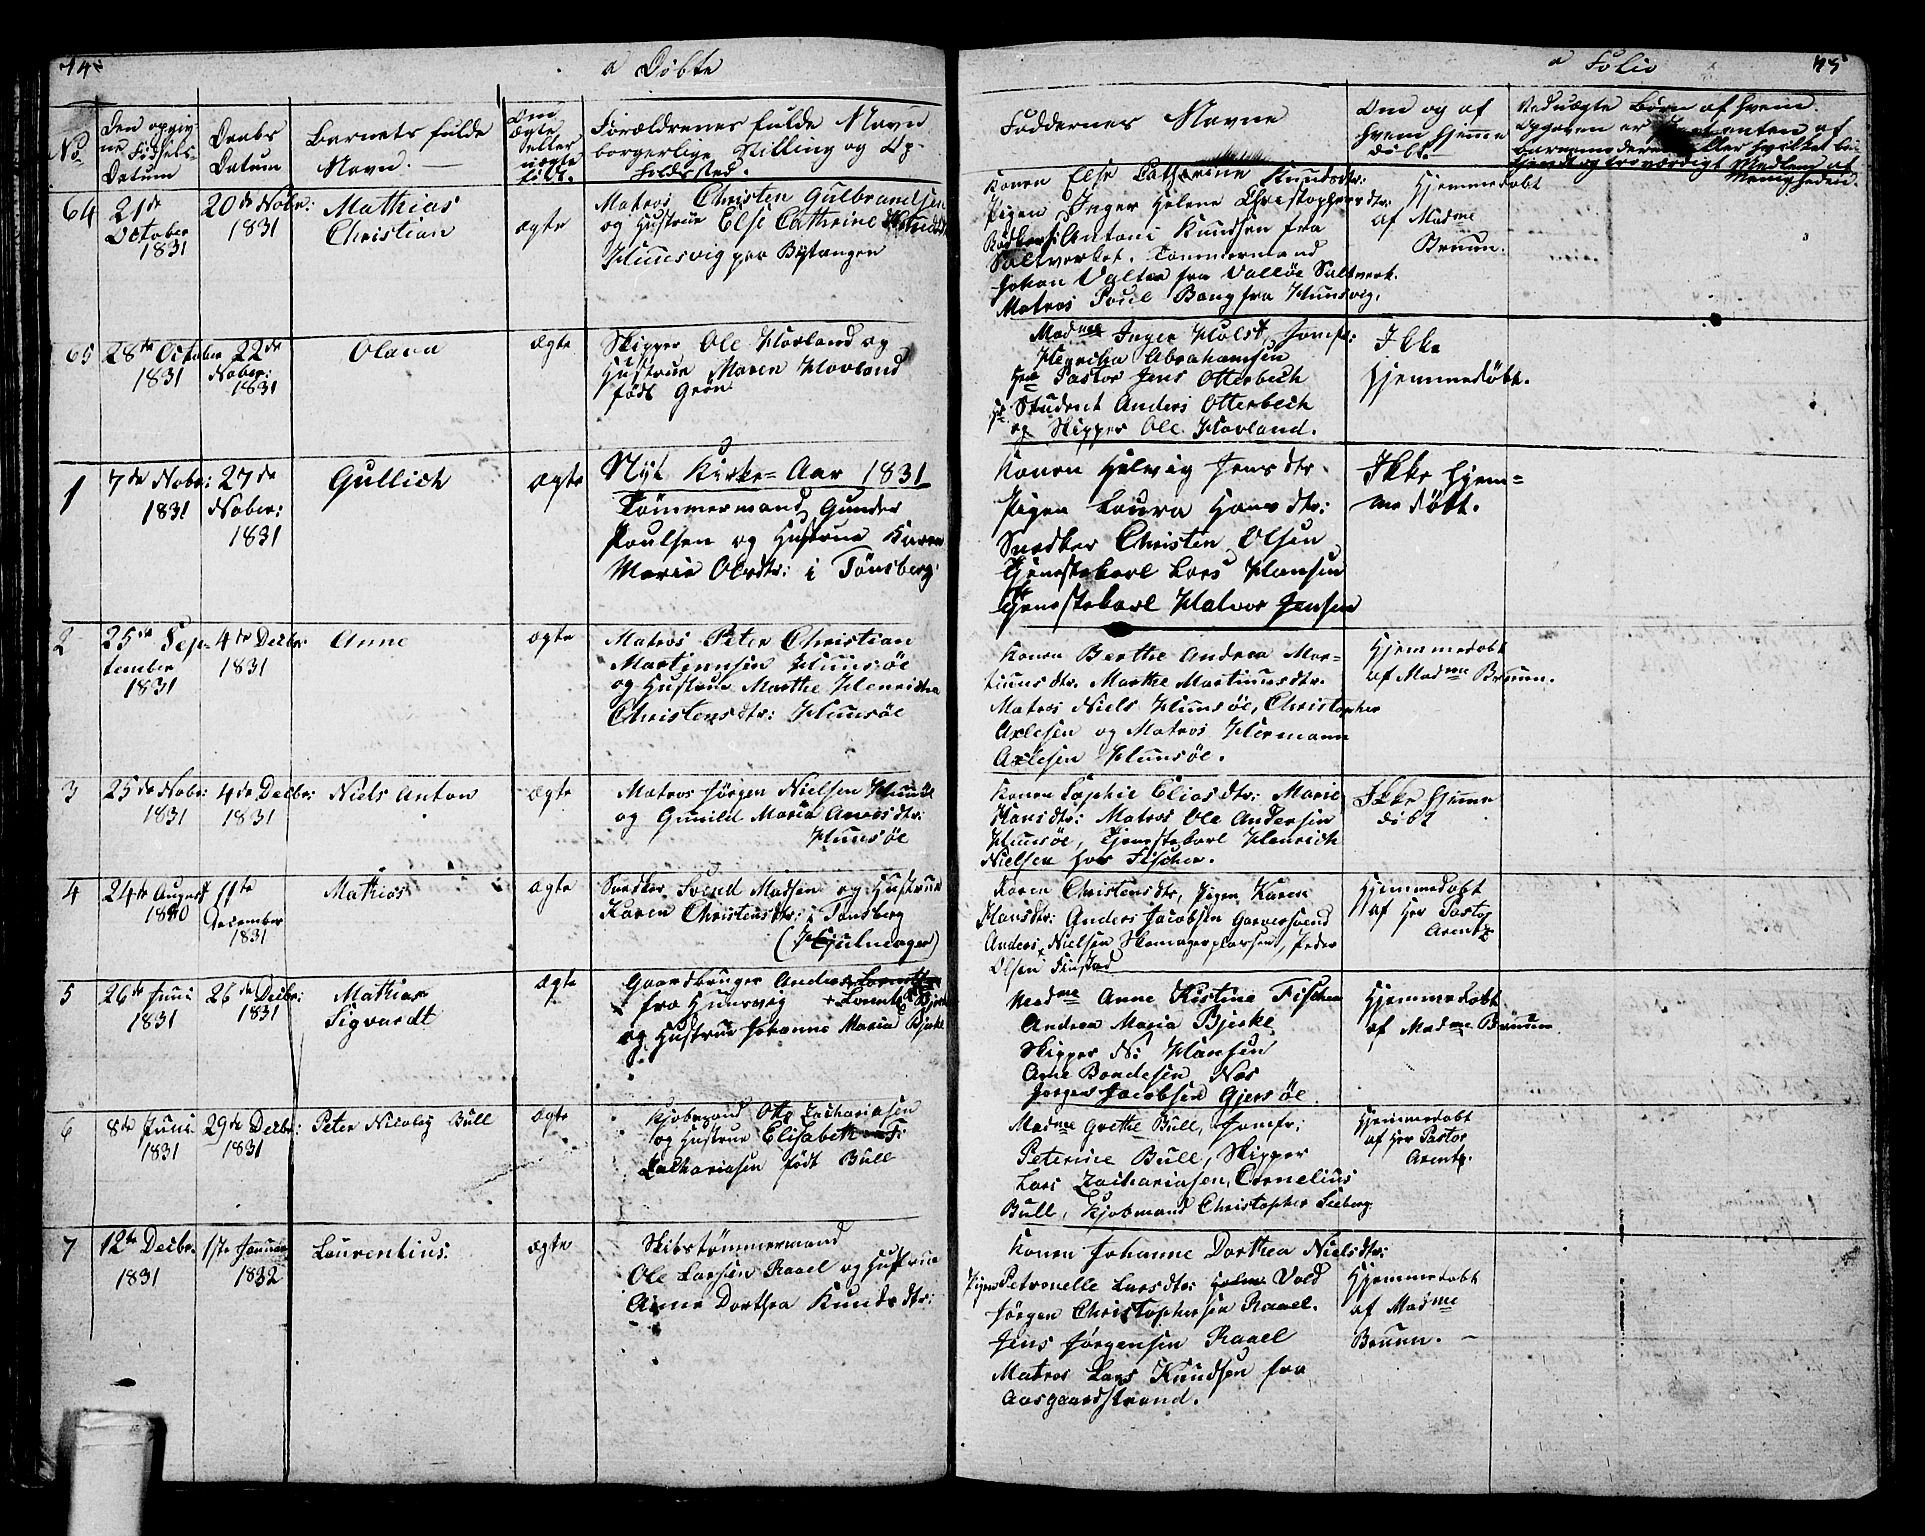 a Døbte
No
Den opgiv-
ne Fødsels-
Datum
Daabs
Datum
Barnets fulde
Navn.
Om
ægte
eller
uægte
født.
Forældrenes fulde Navn
borgerlige Stilling og Op-
holdsSted.
64
21de
October
1831
20de Nobr:
1831
Mathias
Christian
ægte
Matros Christen Gulbrandsen
og Hustrue Else Cathrine
Huusvig paa Bytangen
65
28de October
1831
22de
Nober:
1831
Olava
ægte
Skipper Ole Hovland og
Hustrue Maren Hovland
født Grøn
Nyt Kirke-Aar 1831
1
7de Nobr:
1831
27de
Nober:
1831
Gullich
ægte
Tømmermand Gunder
Poulsen og Hustrue Karen
Marie Olesdtr: i Tønsberg
2
25de Sep-
tember
1831
4de Decbr:
1831
Anne
ægte
Matros Peter Christian
Martinusen Huusøe
og Hustrue Marthe Henricha
Christensdtr: Huusøe
3
25de Nobr:
1831
4de Decbr:
1831
Niels Anton
ægte
Matros Jørgen Nielsen
og Gunild Maria
Huusøe
4
24de August
1830
11te
December
1831
Mathias
ægte
Snedker Svend Madsen og Hustrue
Karen Christensdtr: i Tønsberg
(Hjulmager)
5
26de Juni
1831
26de Decbr:
1831
Mathias
Sigvardt
ægte
Gaardbruger Anders
fra Huusvig
og Hustrue Johanne Maria Bjerke
6
8de Juni
1831
29de Decbr:
1831
Peter Nicolay Bull
ægte
Kjøbmand Otto Zachariasen
og Hustrue Elisabeth
Zachariasen født Bull
7
12te Decbr.
1831
1ste Januar
1832
Laurentius.
ægte
Skibstømmermand
Ole Larsen Raael og Hustrue
Anne Dorthea Knudsdtr:
a Folio
45
Fadderes Navne
Om og af
hvem hjemme
døbt.
Ved uægte Børn af hvem
Opgaven er
Medlem af
Menigheden.
Konen Else Catharine Knudsdtr:
Pigen Inger Helene Christophersdtr:
Antoni Knudsen fra
Saltverket. Tømmermand
Johan Valter fra Valløe Saltverk.
Matros Poul Bang fra Huusvig.
Hjemmedøbt
af Madme
Bruun.
Madme Inger Holst, Jomfr:
Henricha Abrahamsen
Hrr Pastor Jens Otterbech
Hr Student Anders Otterbech
og Skipper Ole Hovland.
Ikke
hjemmedøbt.
Konen Helvig Jensdtr.
Pigen Laura Hansdtr:
Snedker Christen Olsen
Tjenestekarl Lars Hansen
Tjenestekarl Halvor Jensen
Ikke hjem=
medøbt.
Konen Berthe Andrea Mar-
tinusdtr. Marthe Martinusdtr.
Matros Niels Huusøe, Christopher
Axelsen og Matros Hermann
Axelsen Huusøe.
Hjemmedøbt
af Madme Bruun.
Konen Sophie Eliasdtr: Marie
Hansdtr: Matros Ole Andersen
Huusøe, Tjenestekarl Henrich
Nielsen hos Fischer.
Ikke hjemme
døbt
Karen Christensdtr, Pigen Karen
Hansdtr: Anders Jacobsen Garversvend
Anders Nielsen Skomagersvend, Peder
Olsen
Hjemmedøbt
af Hrr Pastor
Arentz
Madme Anne Kistine Fischer
Andrea Maria Bjerke
Skipper N: Hansen
Arne Bondesen Næs
Jørgen Jacobsen Gjersøe
Hjemmedøbt
af Madme Bruun
Madme Grethe Bull, Jomfr:
Peterine Bull, Skipper
Lars Zachariasen, Cornelius
Bull, Kjøbmand Christopher Seeberg
Hjemmedøbt
af Hrr Pastor
Arentz.
Konen Johanne Dorthea Nielsdtr:
Pigen Petronelle Larsdtr: Vold
Jørgen Christophersen Raael.
Jens Jørgensen Raael
Matros Lars Knudsen fra
Aasgaardstrand.
Hjemmedøbt
af Madme
Bruun. -